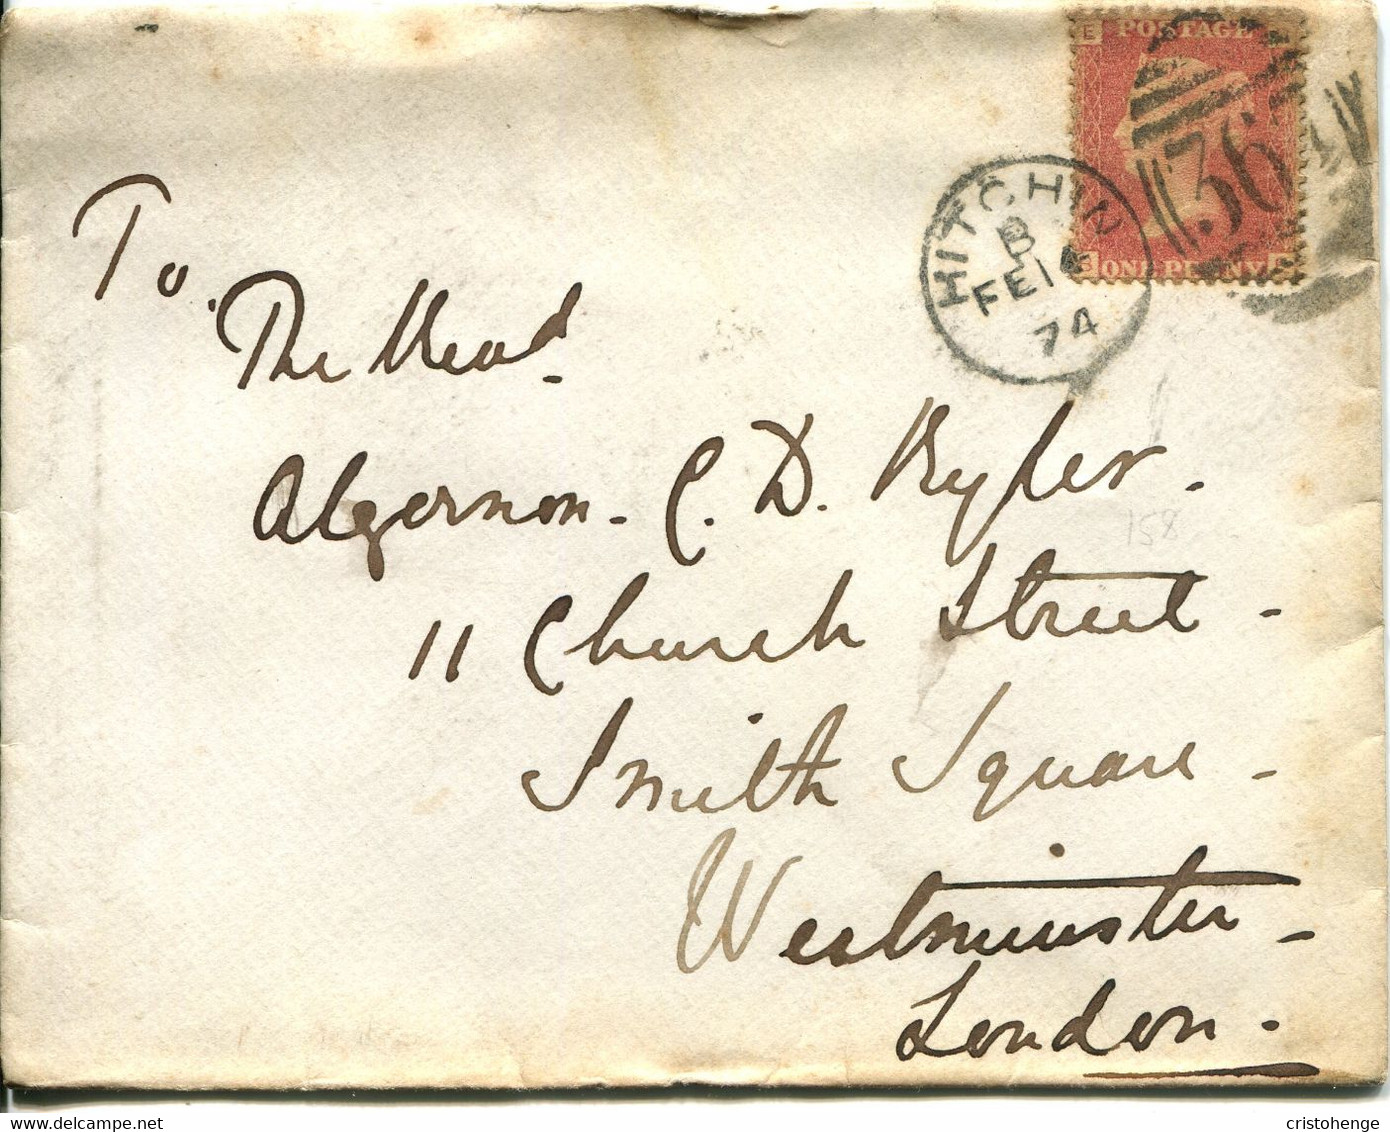 E POSTAGE
36
HITCHIN
B
FE 1
74
ONE PENNY
To.
The Head
Algernon. C. D. Ryder.
11 Church Street
Smith Square
Westminster
London.
158
cristohenge